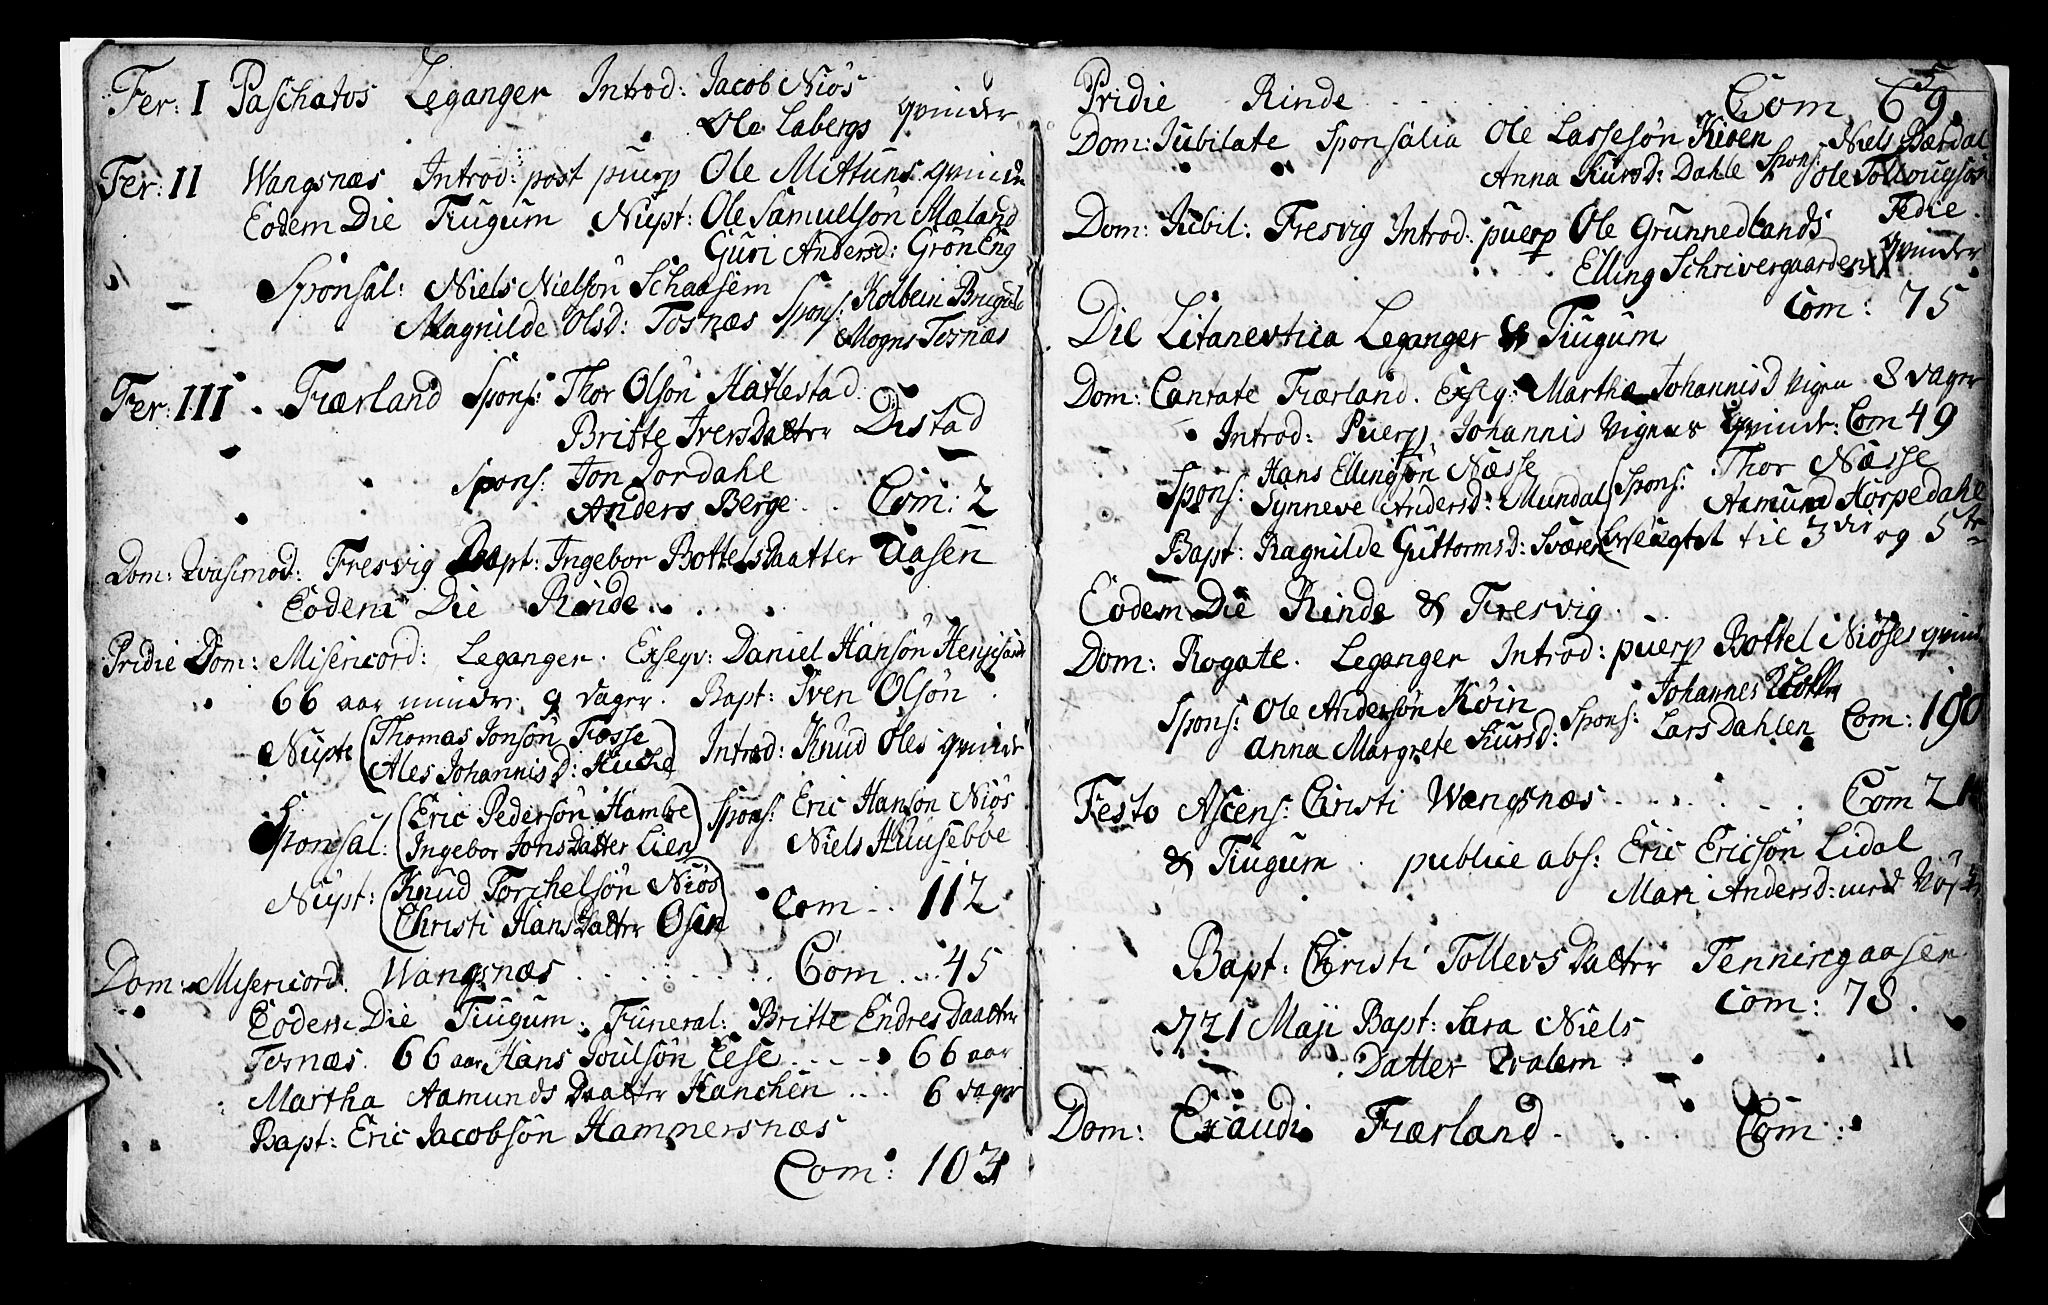 Fer: I Paschatos Leganger Introd: Jacob Niøs
Ole Labergs qvinder
Fer: II Wangsnæs Introd: post puerp Ole Mittuns qvinde
Eodem Die Tiugum Nupt: Ole Samuelsøn Mæland
Guri Andersd: Grøn Eng
Sponsal: Niels Nielsøn Schaasem
Magnilde Olsd: Tosnæs Spons: Kolbein
Mogns Tosnæs
Fer: III Fiærland Spons: Thor Olsøn Hatlestad
Britte Ivers Datter Distad
Spons: Jon Jordahl
Anders Berge Com: 2
Dom: Qvasimod: Fresvig Bapt: Ingebor Bottels Daatter Aasen
Eodem Die Rinde
Pridie Dom: Misericord: Leganger. Exseqv: Daniel Hansøn
66 aar mindre 9 dager. Bapt: Iven Olsøn
Nupt: (Thomas Jonsøn Fosse
Ales Johannis D:) Introd: Knud Oles qvinde
Sponsal: (Eric Pedersøn Hambre
Ingebor Jons Datter Lien) Spons: Eric Hansøn Niøs
Niels Huusebøe
Nupt: (Knud Torchelsøn Niøs
Christi Hans Datter Osen) Com 112
Dom: Misericord. Wangsnæs Com 45
Eodem Die Tiugum. Funeral: Britte Endres Daatter
Tosnæs. 66 aar Hans Poulsøn Eese 66 aar
Martha Aamunds Daatter Hanchen 6 dager
Bapt: Eric Jacobsøn Hammersnæs
Com: 103
5
Pridie Rinde Com 69
Dom: Jubilate Sponsalia Ole Lassesøn
Anna Siursd: Dahle Spons: Niels Bærdal
Ole Tollougsøn
Tedie.
Dom: Jubil: Fresvig Introd: puerp Ole Grunnedlands
Elling Schrivergaarden qvinder
Com: 75
Die Litanevtica Leganger & Tiugum
Dom: Cantate Fiærland. Exseq: Martha Johannis D Vigen 8 dager
Introd: Puerp Johannis Vignes qvinde: Com 49
Spons: Hans Ellingsøn Næsse
Synneve Andersd: Mundal (Spons: Thor Næsse
Aamund Horpedahl
Bapt: Ragnilde Guttormsd: Sværen til 3die og 5te
Eodem Die Rinde & Fresvig.
Dom: Rogate. Leganger Introd: puerp Bottel Niøses qvinde
Spons: Ole Andersøn
Anna Margrete Siursd: Spons: Johannes
Lars Dahlen Com: 190
Festo Ascens: Christi Wangsnæs Com 21
& Tiugum. publice abs: Eric Ericsøn Lidal
Mari Andersd:
Bapt: Christi Tollevs Datter Tenningaasen
Com: 78.
Maji Bapt: Sara Niels
Datter Qvalem
Dom: Exaudi Fiærland Com: